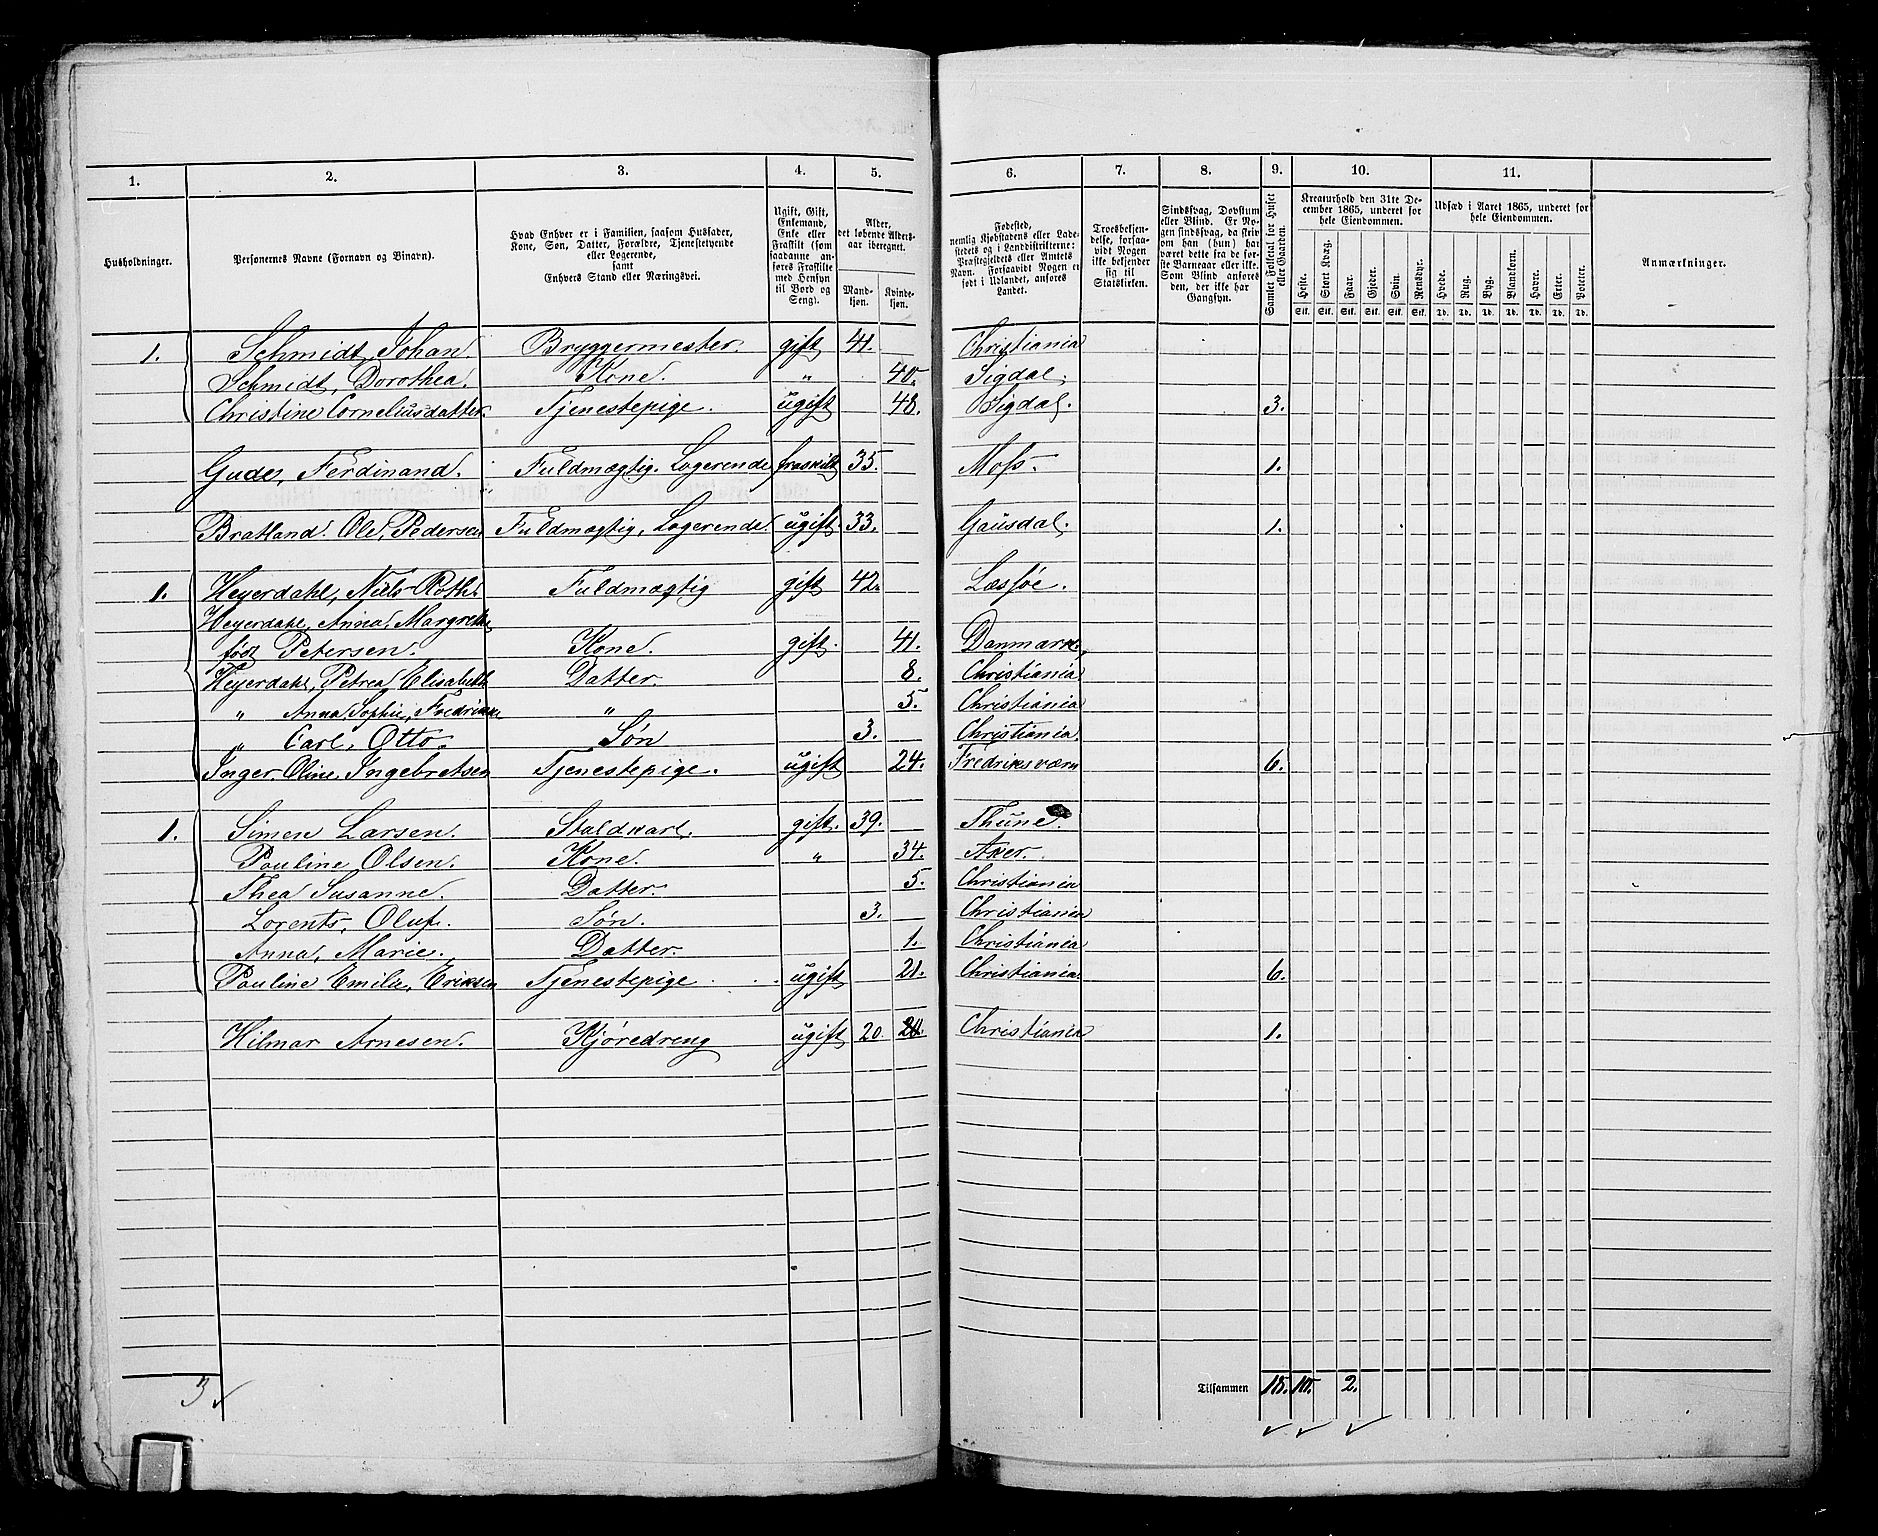 1. 2. 3. 4. 5. 6. 7. 8. 9. 10. 11.
Husholdninger.
Personernes Navne (Fornavn og Binavn).
Hvad Enhver er i Familien, saasom Husfader,
Kone, Søn, Datter, Forældre, Tjenestetyende
eller Logerende,
samt
Enhvers Stand eller Næringsvei.
Ugift, Gift,
Enkemand,
Enke eller
Fraskilt (som
saadanne an-
føres Fraskilte
med Hensyn
til Bord og
Seng).
Alder,
det løbende Alders-
aar iberegnet.
Mand-
kjøn.
Kvinde-
kjøn.
Fødested,
nemlig Kjøbstadens eller Lade-
stedets og i Landdistrikterne:
Præstegjeldets eller Amtets
Navn. Forsaavidt Nogen er
født i Udlandet, anføres
Landet.
Troesbekjen-
delse, forsaa-
vidt Nogen
ikke bekjender
sig til
Statskirken.
Sindssvag, Døvstum
eller Blind. Er No-
gen sindssvag, da skriv
om han (hun) har
været dette fra de før-
ste Barneaar eller ikke.
Som Blind anføres
den, der ikke har
Gangsyn.
Samlet Folketal for Huset
eller Gaarden.
Kreaturhold den 31te De-
cember 1865, underet for
hele Eiendommen.
Heste. Stort Kvæg. Faar. Gjeder. Svin. Rensdyr.
Stk. Stk. Stk. Stk. Stk. Stk.
Udsæd i Aaret 1865, underet for
hele Eiendommen.
Hvede. Rug. Byg. Blandkorn. Havre. Erter. Poteter.
Td. Td. Td. Td. Td. Td. Td.
Anmærkninger.
1. Schmidt, Johan. Bryggermester. gift 41. Christiania
Schmidt, Dorothea. Kone. " 40. Sigdal.
Christine Corneliusdatter. Tjenestepige. ugift 48. Sigdal. 3.
Gude, Ferdinand. Fuldmægtig. Logerende fraskilt 35. Moss. 1.
Bratland. Ole, Pedersen Fuldmægtig, Logerende. ugift. 33. Gausdal. 1.
1. Heyerdahl, Niels Roth. Fuldmægtig gift 42. Læssøe.
Heyerdahl, Anna, Margrethe
født Petersen. Kone. gift. 41. Danmark.
Heyerdahl, Petrea Elisabeth Datter. 8. Christiania
" Anna, Sophie, Fredrikke " 5. Christiania
" Carl, Otto. Søn 3. Christiania.
Inger Oline, Ingebretsen Tjenestepige. ugift 24. Fredriksværn 6.
1. Simen Larsen. Staldkarl. gift. 39. Thune.
Pauline Olsen. Kone. " 34. Aker.
Thea Susanne. Datter. 5. Christiania
Lorents, Oluf. Søn. 3. Christiania
Anna, Marie. Datter. 1. Christiania
Pauline Emilie, Eriksen Tjenestepige ugift 21. Christiania. 6.
Hilmar Arnesen. Kjøredreng ugift 20. 20. Christiania 1.
3
Tilsammen 18. 10. 2.